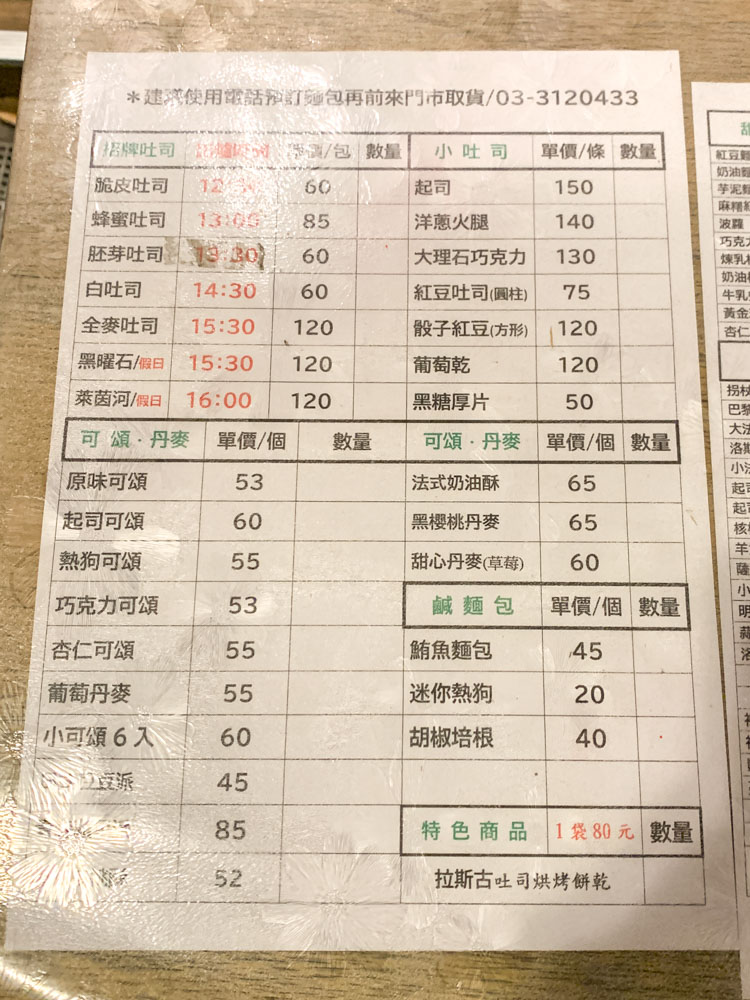 ＊建議使用電話預訂麵包再前來門市取貨/03-3120433
招牌吐司 出爐時間 單價/包 數量 小吐司 單價/條 數量
脆皮吐司 60 起司 150
蜂蜜吐司 13:05 85 洋蔥火腿 140
胚芽吐司 13:30 60 大理石巧克力 130
白吐司 14:30 60 紅豆吐司(圓柱) 75
全麥吐司 15:30 120 骰子紅豆(方形) 120
黑曜石/假日 15:30 120 葡萄乾 120
萊茵河/假日 16:00 120 黑糖厚片 50
可頌·丹麥 單價/個 數量 可頌·丹麥 單價/個 數量
原味可頌 53 法式奶油酥 65
起司可頌 60 黑櫻桃丹麥 65
熱狗可頌 55 甜心丹麥(草莓) 60
巧克力可頌 53 鹹麵包 單價/個 數量
杏仁可頌 55 鮪魚麵包 45
葡萄丹麥 55 迷你熱狗 20
小可頌6入 60 胡椒培根 40
豆派 45
85 特色商品 1袋80元 數量
52 拉斯古吐司烘烤餅乾
甜
紅豆麵
奶油麵
芋泥麵
麻糬紅
波蘿
巧克力
煉乳
奶油
牛乳
黃金
杏仁
拐杖
巴黎
大法
洛斯
小法
起司
起司
核
羊
薩
小
明
蒜
洛